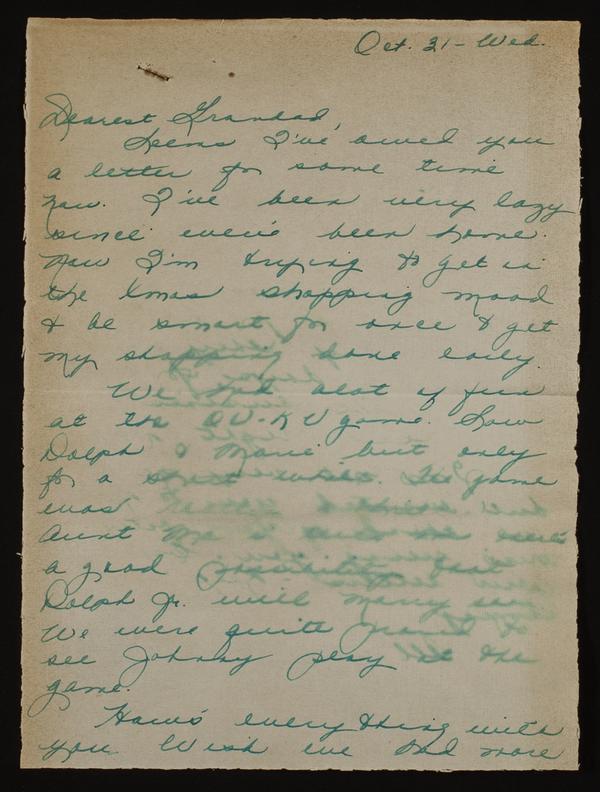 Oct. 31 - Wed.
Dearest Grandad,
Seems I've owed you
a letter for some time
now. I've been very lazy
since we've been home.
Now I'm trying to get in
the Xmas shopping mood
& be smart for once & get
my shopping done early.
We had alot of fun
at the OU-KU game. Saw
Dolph & Marie but only
for a short while. The game
was
Aunt
a good possibility that
Dolph Jr. will marry
We were quite proud to
see Johnny play at the
game.
How's everything with
you. Wish we had more